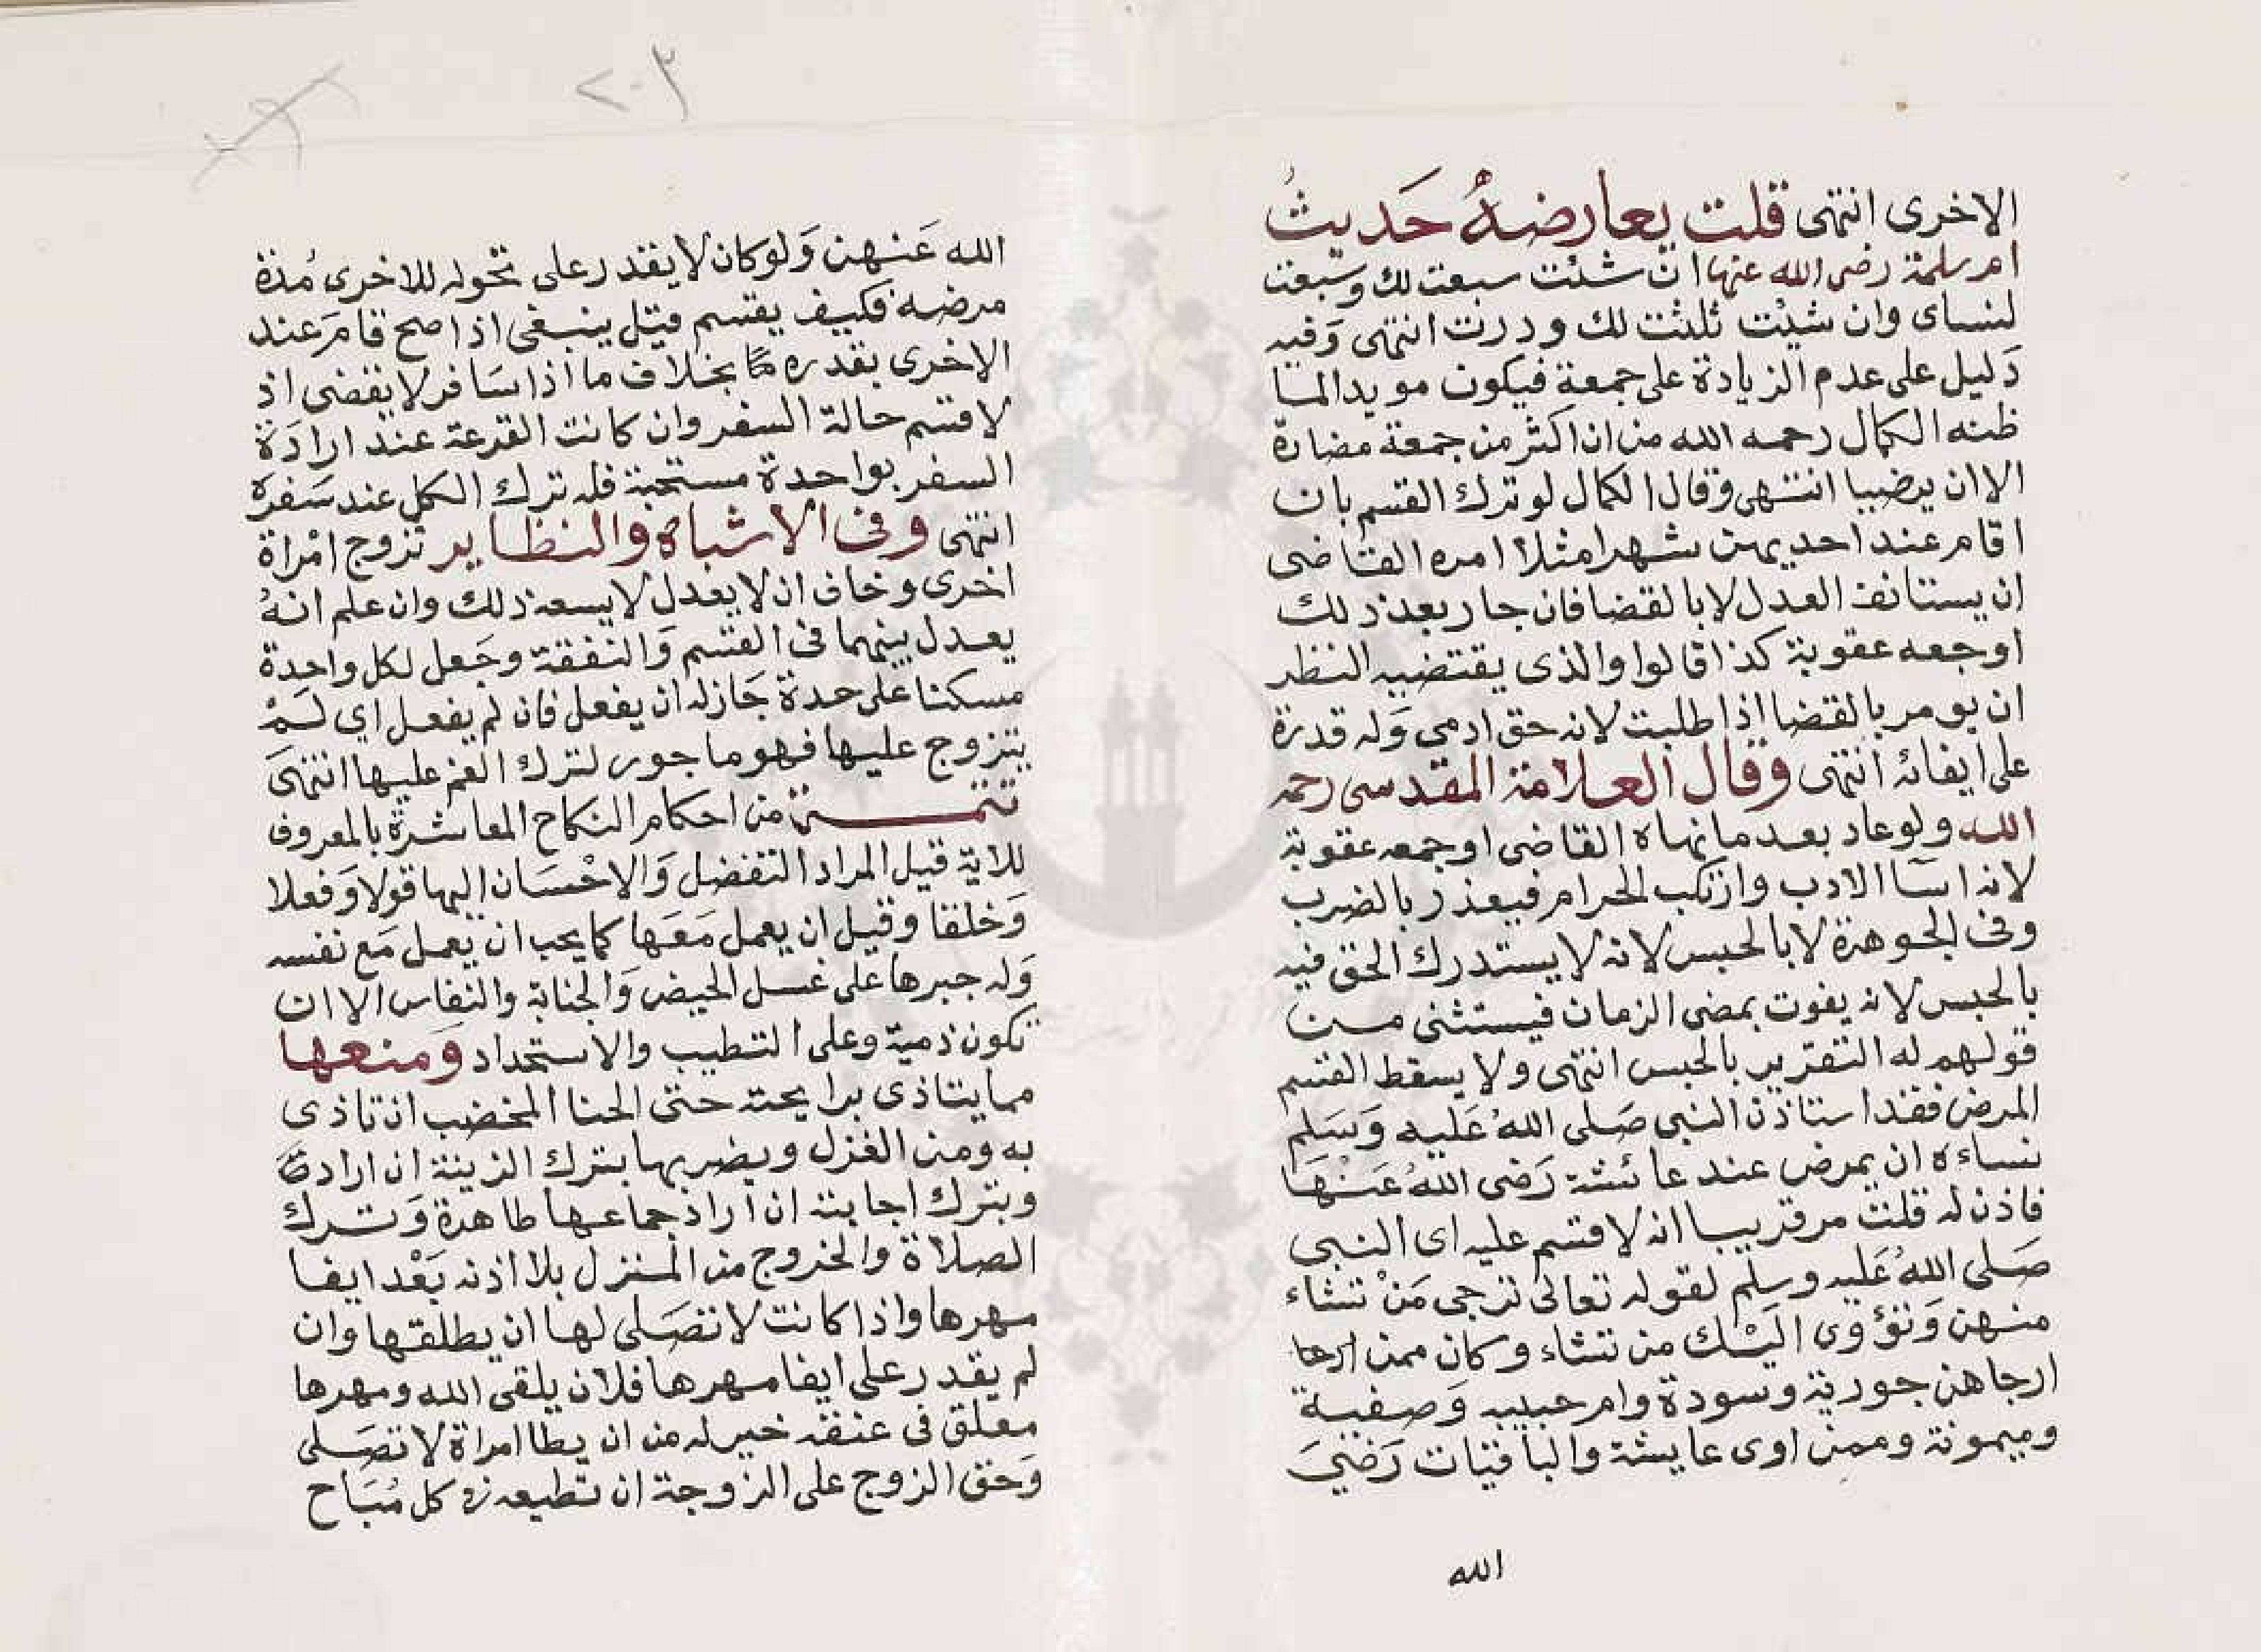 الاخرى انتهى قلت يعارضهُ حَديثُ
ام سلمة رضى الله عنها ان شئت سبعت لك وسبعت
لنساى وان شيئت ثلثت لك ودرت انتهى وَفيه
دَليل على عدم الزيادة على جمعة فيكون مويدا لما
ظنه الكمال رحمه الله من ان اكثر من جمعة مضارة
الا ان يرضيا انتهى وقال الكمال لو ترك القسم بان
اقام عند احديهن شهرا مثلا امره القاضى
ان يستانف العدل لا بالقضا فان جار بعد ذلك
اوجعه عقوبة كذا قالوا والذى يقتضيه النظر
ان يومر بالقضا اذا طلبت لانه حق ادمي وَله قدرة
على ايفائه انتهى وقال العلامة المقدسى رحمه
الله ولو عاد بعد ما نهاه القاضى اوجعه عقوبة
لانه اسآ الادب وارتكب الحرام فيعذر بالضرب
وفى الجوهرة لا بالحبس لانه لا يستدرك الحق فيه
بالحبس لانه يفوت بمضى الزمان فيستثنى من
قولهم له التعزير بالحبس انتهى ولا يسقط القسم
المرض فقد استاذن النبى صَلى اللهُ عَليه وَسَلم
نساءه ان يمرض عند عائشة رَضى اللهُ عَنْهَا
فاذن له قلت مر قريبا انه لا قسم عليه اى النبى
صَلى اللهُ عَليه وسلم لقوله تعالى ترجى مَنْ تشاء
منهن وَتؤوى اليْك من تشاء وكان ممن ارجا
ارجاهن جورية وسودة وام حبيبه وَصفية
وميمونة وممن اوى عايشة والباقيات رَضيَ
الله
٢٠٣
الله عَنهن وَلو كان لا يقدر على تحوله للاخرى مُدة
مرضه فكيف يقسم قيل ينبغى اذا صح قام عند
الاخرى بقدره بخلاف ما اذا سَافر لا يقضى اذ
لا قسم حالة السفر وان كانت القرعة عند ارادَة
السفر بواحدة مستحبة فله ترك الكل عند سَفره
انتهى وفى الاشباه والنظاير تزوج امْراة
اخرى وخاف ان لا يعدل لا يسعه ذلك وان علم انهُ
يعدل بينهما فى القسم وَالنفقة وجَعل لكل واحدة
مسكنا على حدة جَاز له ان يفعل فان لم يفعل اي لمْ
يتزوج عليها فهو ماجور لترك الغم عليها انتهىَ
تتمة من احكام النكاح المعاشرَة بالمعروف
للاية قيل المراد التفضل وَالاحْسَان اليها قولا وَفعلا
وَخلقا وقيل ان يعمل مَعَها كما يحب ان يعمل مَع نفسه
وَله جبرها على غسل الحيض وَالجنابة والنفاس الا ان
تكون ذمية وعلى التطيب والاستحداد وَمنعها
مما يتاذى برايحته حتى الحنا المخضب ان تاذى
به ومن الغزل ويضربها بترك الزينة ان ارادهَا
وبترك اجابته ان اراد جماعها طاهرة وَترك
الصلاة والخروج من المنزل بلا اذنه بَعْد ايفا
مهرها واذا كانت لا تصَلى لها ان يطلقها وان
لم يقدر على ايفا مهرها فلان يلقى الله ومهرها
معلق فى عنقه خير له من ان يطا امراة لا تصَلى
وَحق الزوج على الزوجة ان تطيعه فى كل مُبَاح